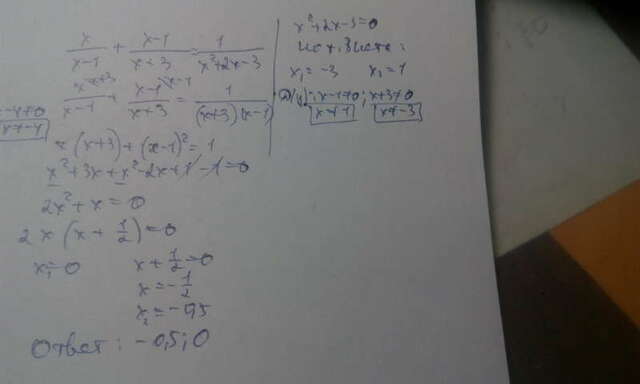 x/(x-1) + (x-1)/(x+3) = 1/(x²+2x-3)
x/(x-1) + (x-1)/(x+3) = 1/((x+3)(x-1))
x(x+3)+(x-1)²=1
x²+3x+x²-2x+1-1=0
2x²+x=0
2x(x+1/2)=0
x₁=0
x+1/2=0
x=-1/2
x₂=-0,5
Ответ: -0,5; 0
x²+2x-3=0
x₁=-3 x₂=1
x-1≠0; x+3≠0
x≠1 x≠-3